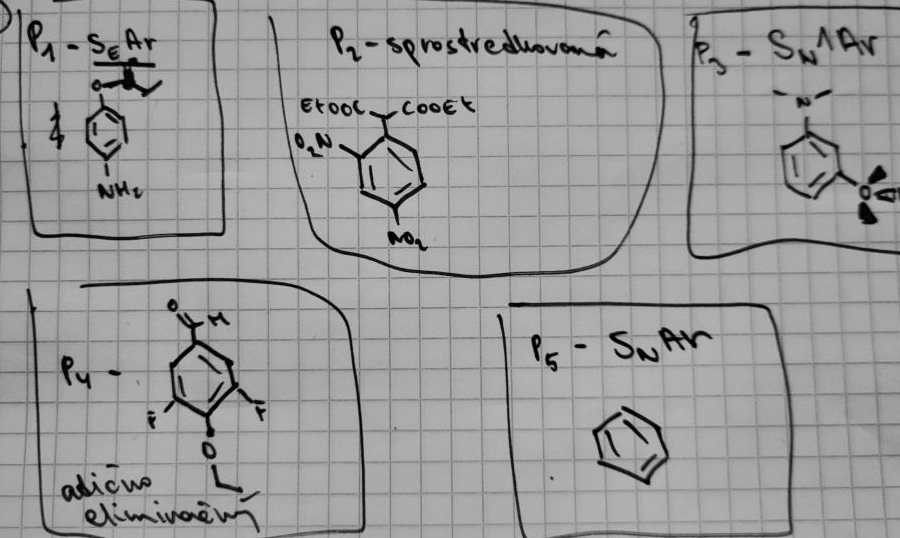 P1 - SEAr
O
NH2
P2 - sprostredkovaná
EtOOC COOEt
O2N
NO2
P3 - SN1Ar
N
O
P4 -
O H
F F
O
adično
eliminačný
P5 - SNAr